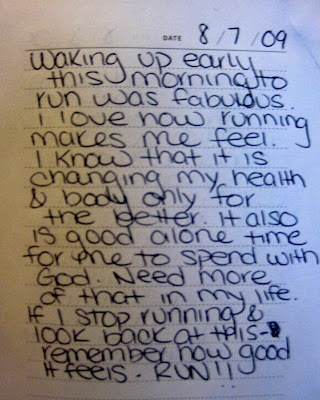 DATE 8/7/09
Waking up early
this morning to
run was fabulous.
I love how running
makes me feel.
I know that it is
changing my health
& body only for
the better. It also
is good alone time
for me to spend with
God. Need more
of that in my life.
If I stop running &
look back at this-
remember how good
it feels. RUN!!